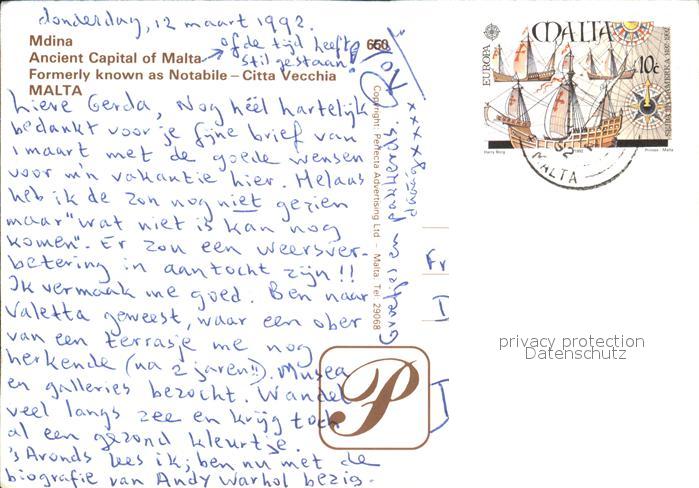 donderdag, 12 maart 1992.
Mdina
Ancient Capital of Malta
Formerly known as Notabile – Citta Vecchia
MALTA
of de tijd heeft
stil gestaan!
668
Lieve Gerda, Nog héél hartelijk
bedankt voor je fijne brief van
1 maart met de goede wensen
voor m'n vakantie hier. Helaas
heb ik de zon nog niet gezien
maar "wat niet is kan nog
komen". Er zou een weersver-
betering in aantocht zijn!!
Ik vermaak me goed. Ben naar
Valetta geweest, waar een ober
van een terrasje me nog
herkende (na 2 jaren!!). Musea
en galleries bezocht. Wandel
veel langs zee en krijg toch
al een gezond kleurtje.
's Avonds lees ik; ben nu met de
biografie van Andy Warhol bezig.
Groetjes en
xxxx
Copyright: Perfecta Advertising Ltd – Malta, Tel: 29068
P
Fr
EUROPA
MALTA
10c
Harry Borg
1992
Printex - Malta
MALTA
privacy protection
Datenschutz